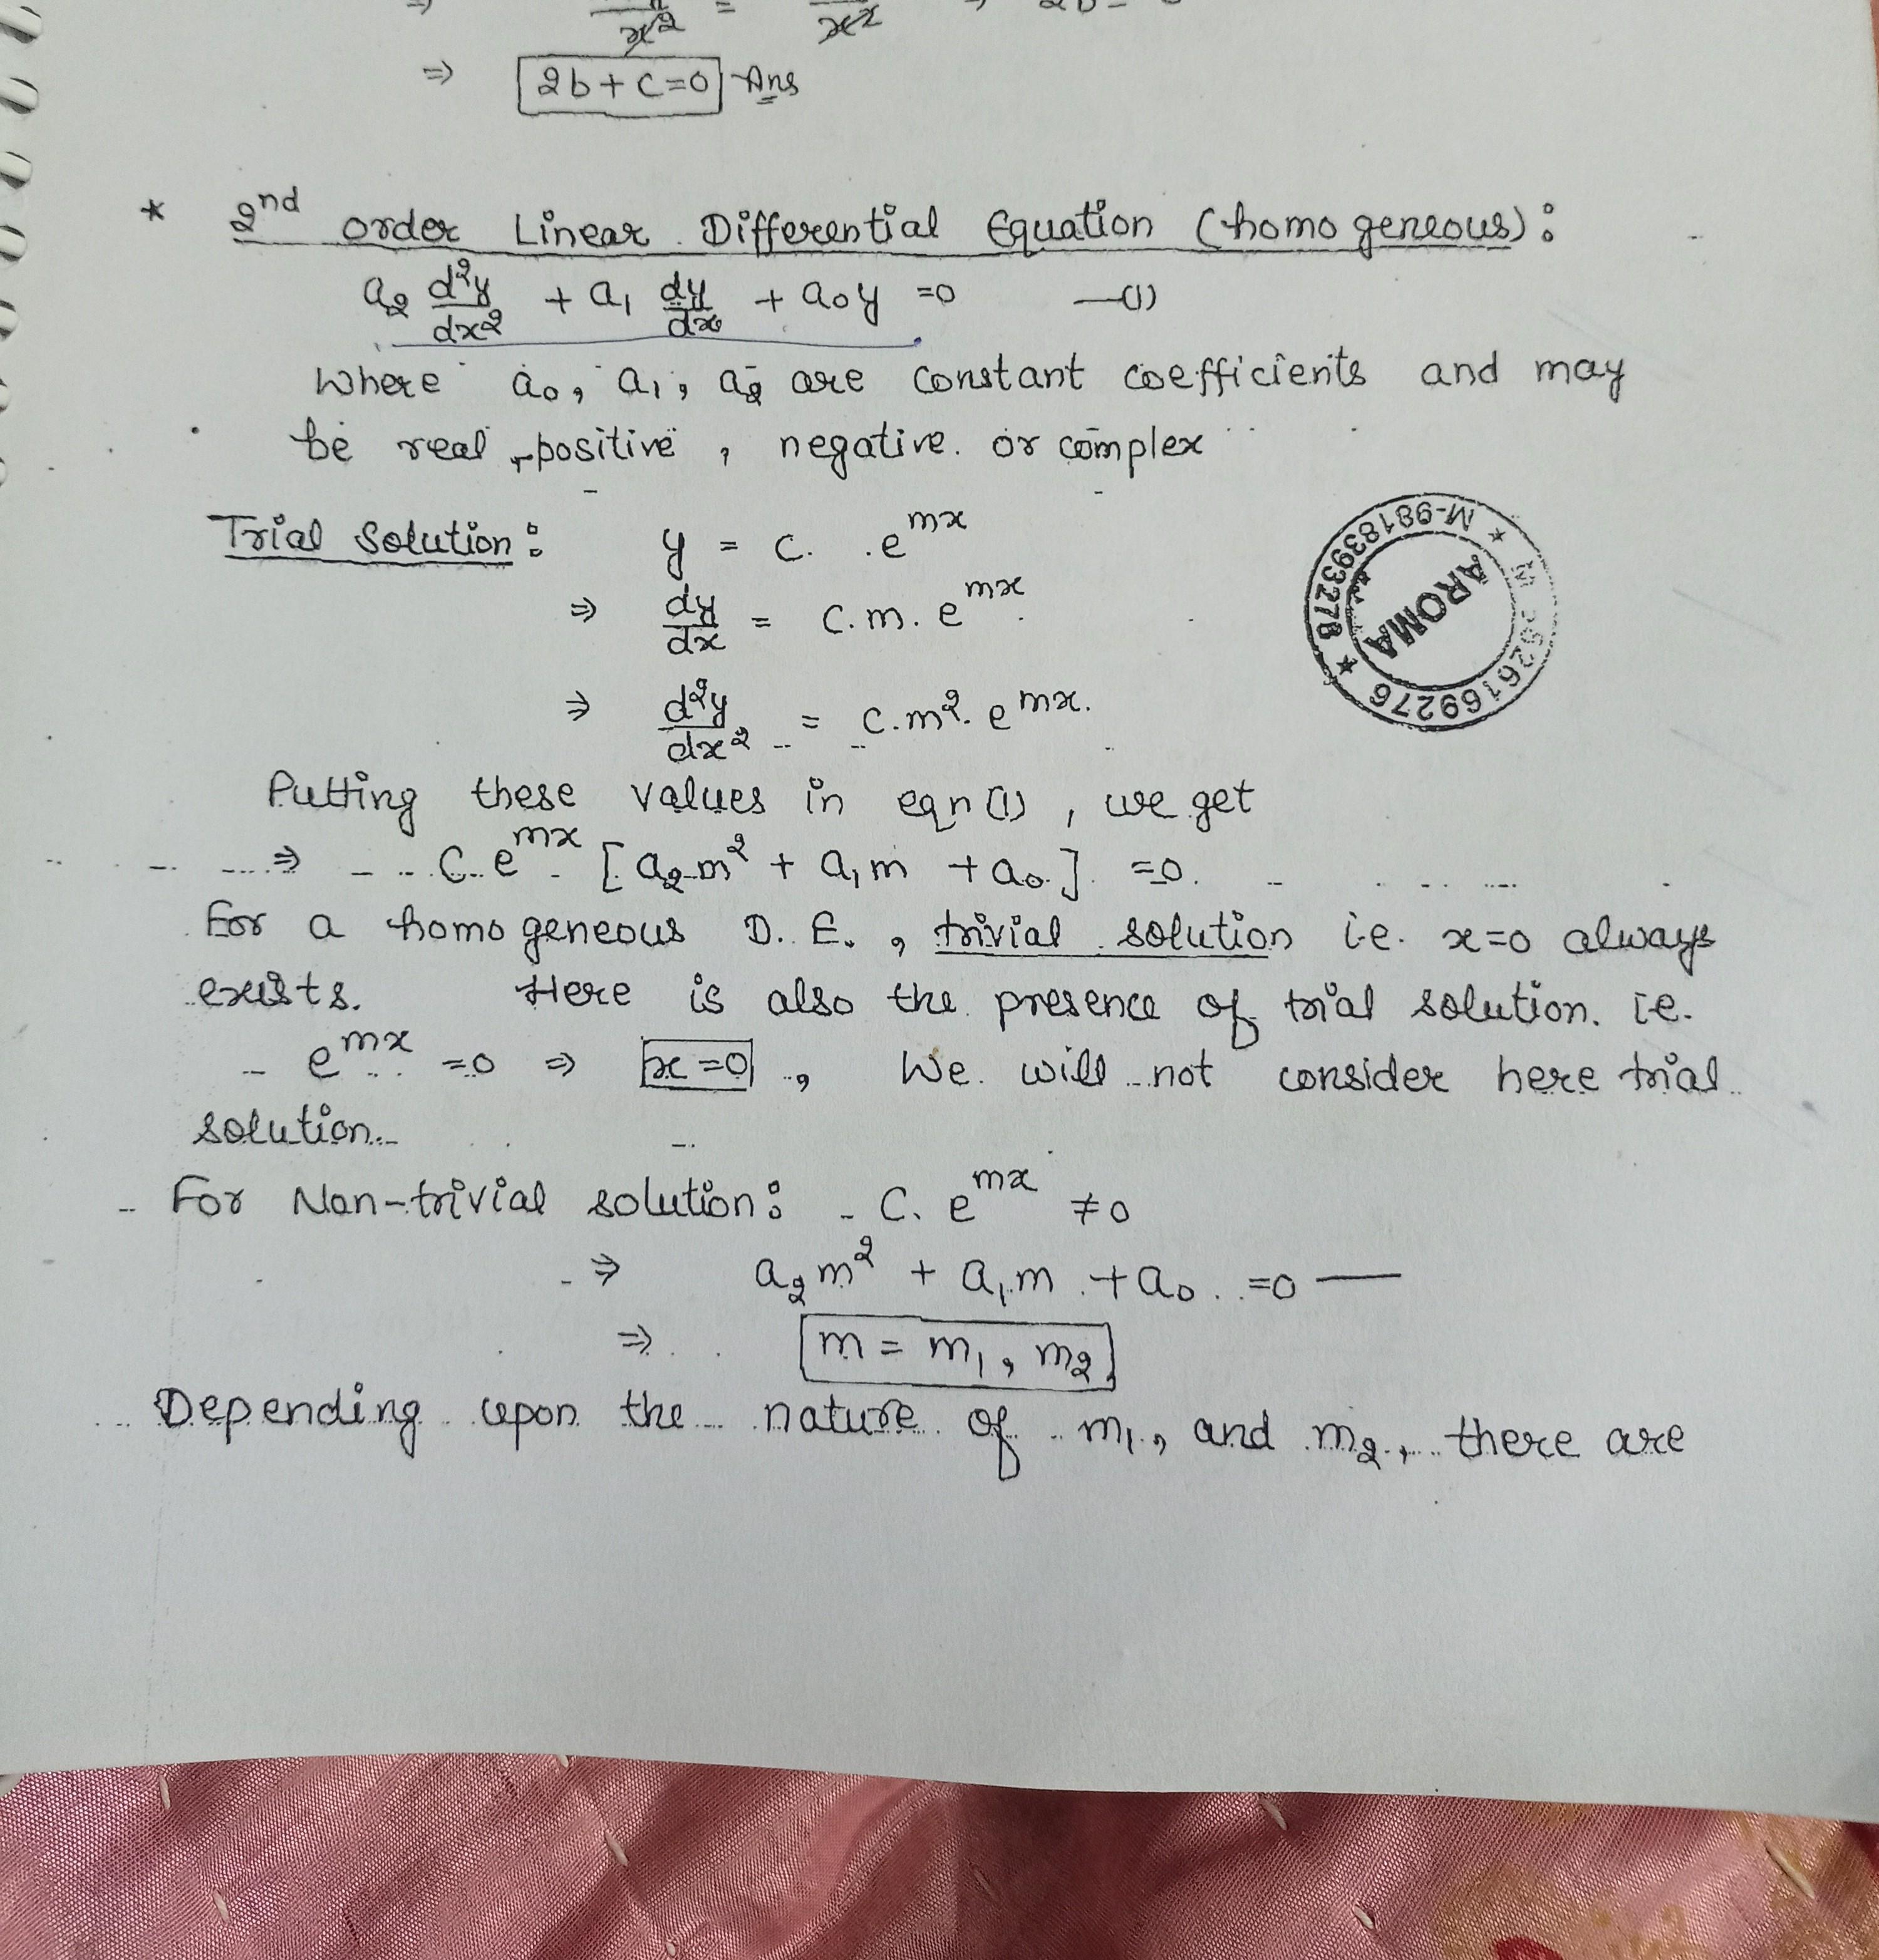 ⇒ x² = x² ⇒
⇒ 2b + c = 0 Ans
* 2nd order Linear Differential Equation (homogeneous):
a₂ d²y/dx² + a₁ dy/dx + a₀y = 0 —(1)
Where a₀, a₁, a₂ are constant coefficients and may
be real, positive, negative or complex
Trial Solution: y = c. e^mx
⇒ dy/dx = c.m. e^mx
⇒ d²y/dx² = c.m². e^mx.
Putting these values in eqn (1), we get
⇒ C. e^mx [a₂m² + a₁m + a₀] = 0.
For a homogeneous D.E., trivial solution i.e. x=0 always
exists. Here is also the presence of trial solution. i.e.
e^mx = 0 ⇒ x = 0, We will not consider here trial
solution.
For Non-trivial solution: C. e^mx ≠ 0
⇒ a₂m² + a₁m + a₀ = 0 —
⇒ m = m₁, m₂
Depending upon the nature of m₁, and m₂, there are
AROMA
M-9818393278 ★ 9269276 ★